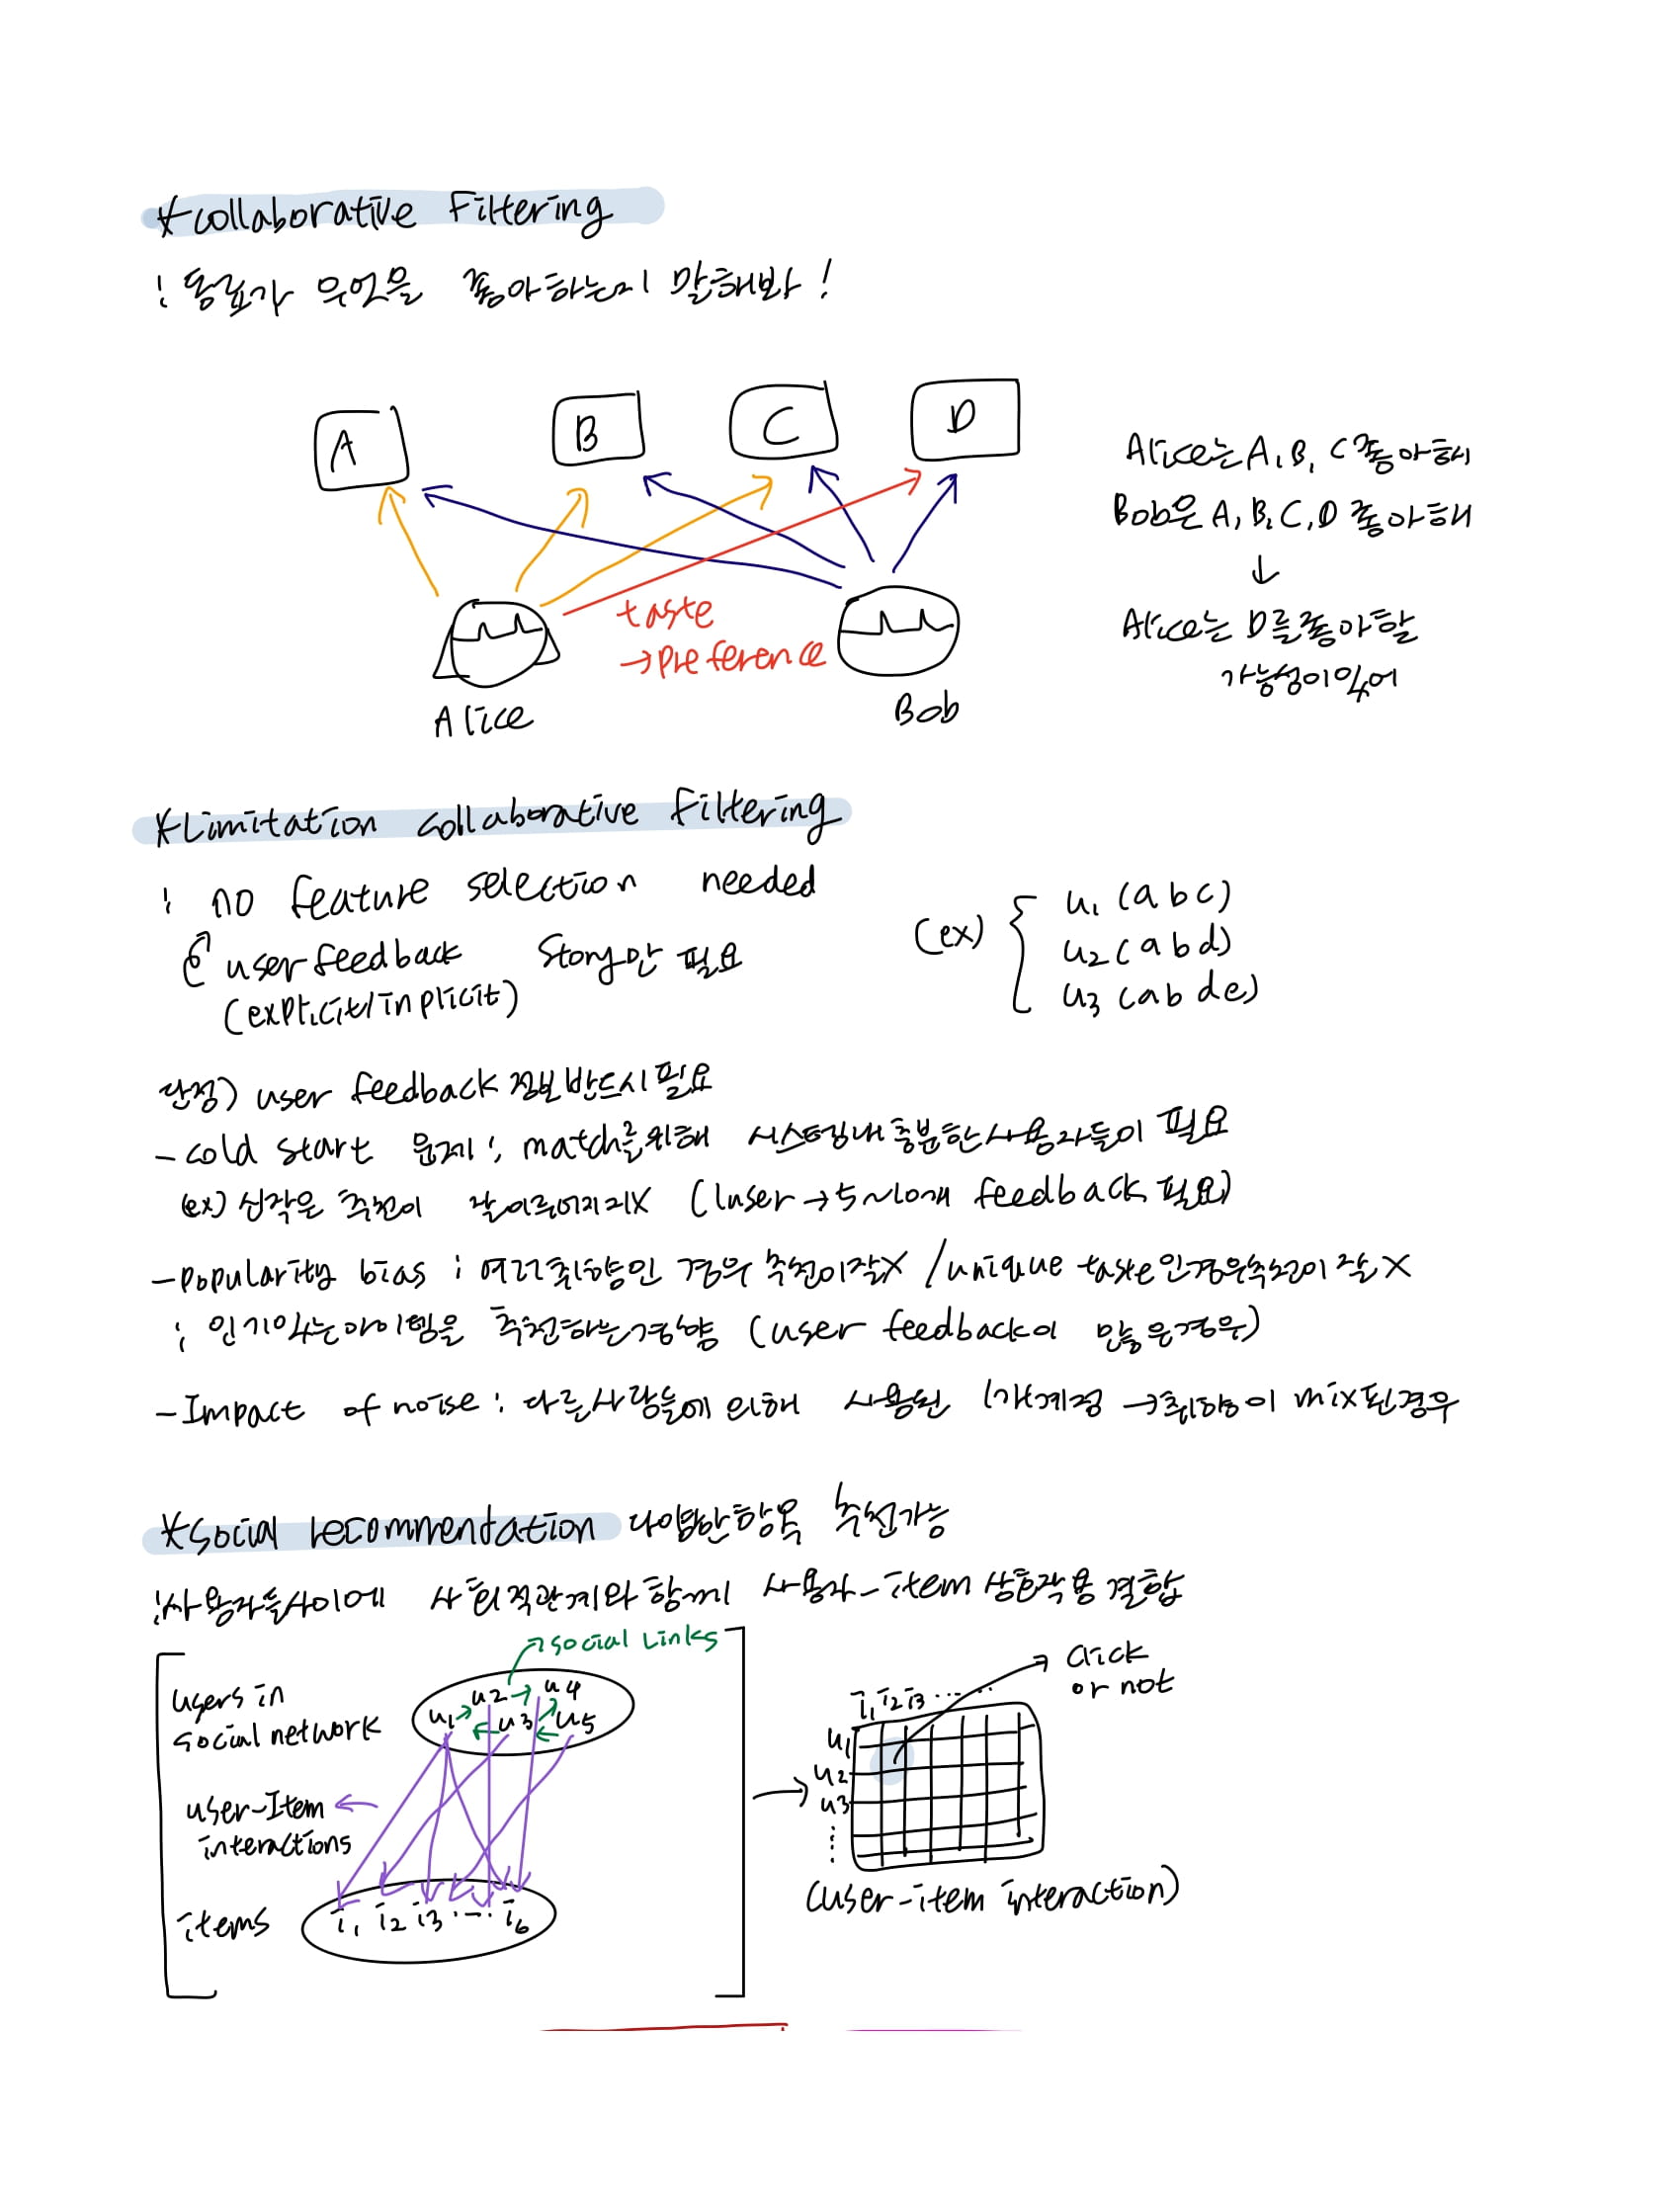 *collaborative Filtering
: 동료가 무엇을 좋아하는지 말해봐!
A B C D
Alice는 A, B, C 좋아해
Bob은 A, B, C, D 좋아해
↓
Alice는 D를 좋아할
가능성이 있어
taste
→preference
Alice
Bob
*Limitation collaborative filtering
: no feature selection needed
user feedback story만 필요
(explicit/inplicit)
(ex) { u1 (abc)
u2 (abd)
u3 (abde)
단점) user feedback 정보 반드시 필요
-cold start 문제: match를 위해 시스템내 충분한 사용자들이 필요
(ex) 신작은 추천이 잘 이루어지지X (1user→5~10개 feedback 필요)
-popularity bias : 여러취향인 경우 추천이 잘X / unique taste인 경우 추천이 잘 X
: 인기있는 아이템을 추천하는 경향 (user feedback이 많은 경우)
-Impact of noise : 다른사람들에 의해 사용된 1개계정 →취향이 mix된 경우
*social recommendation 다양한 항목 추천가능
: 사용자들 사이에 사회적관계와 함께 사용자-item 상호작용 결합
→social links
users in
social network
u1 u2 u3 u4 u5
user-Item
interactions
items
i1 i2 i3 ... i6
click
or not
i1 i2 i3 .....
u1
u2
u3
⋮
(user-item interaction)